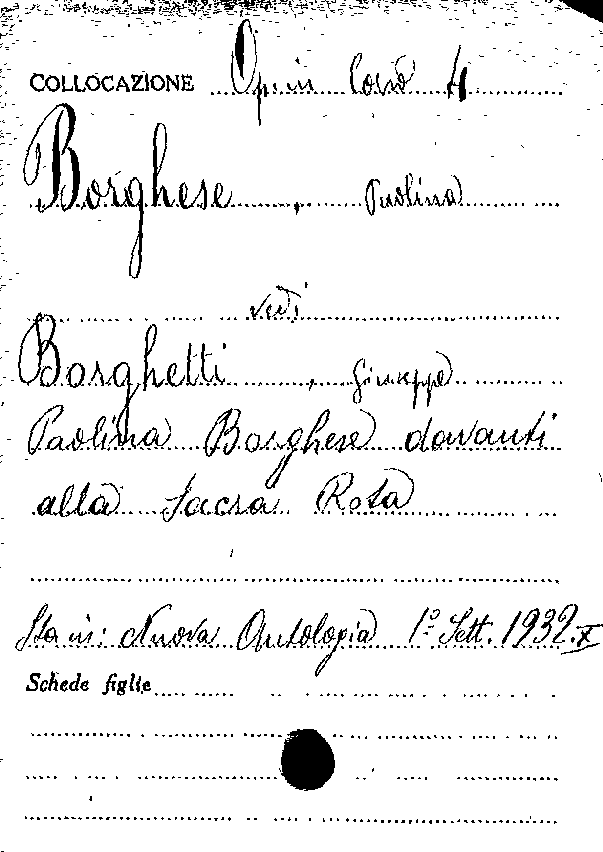 COLLOCAZIONE Op. in 4
Borghese, Paolina
vedi
Borghetti, Giuseppe
Paolina Borghese davanti
alla Sacra Rota
Sta in: Nuova Antologia 1º Sett. 1932. X
Schede figlie